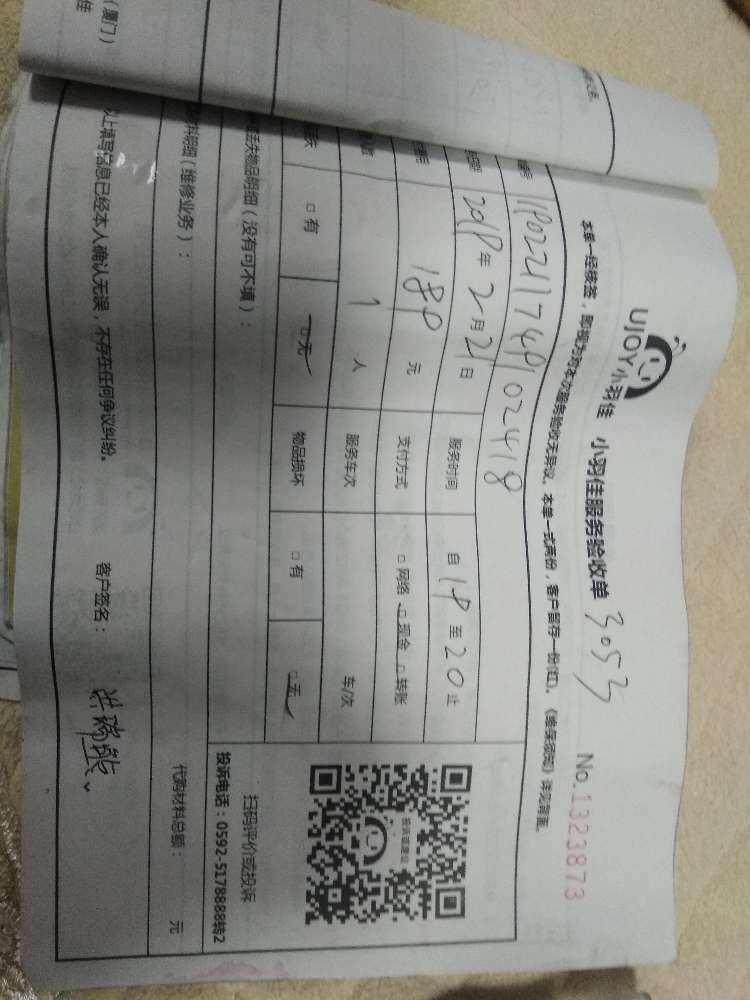 UJOY小羽佳 小羽佳服务验收单 3053 No.1323873
本单一经接签，即视为对本次服务验收无异议。本单一式两份，客户留存一份(红)。《维保须知》详见背面。
2019年2月21日 服务时间 自19至20止
189元 支付方式 □网络 □现金 □转账
1人 服务车次 车/次
□有 □无 物品损坏 □有 □无
丢失物品明细（没有可不填）：
材料明细（维修业务）： 代购材料总额： 元
以上填写信息已经本人确认无误，不存在任何争议纠纷。 客户签名：
投诉或建议
扫码评价或投诉
投诉电话：0592-5178888转2
（厦门）
佳